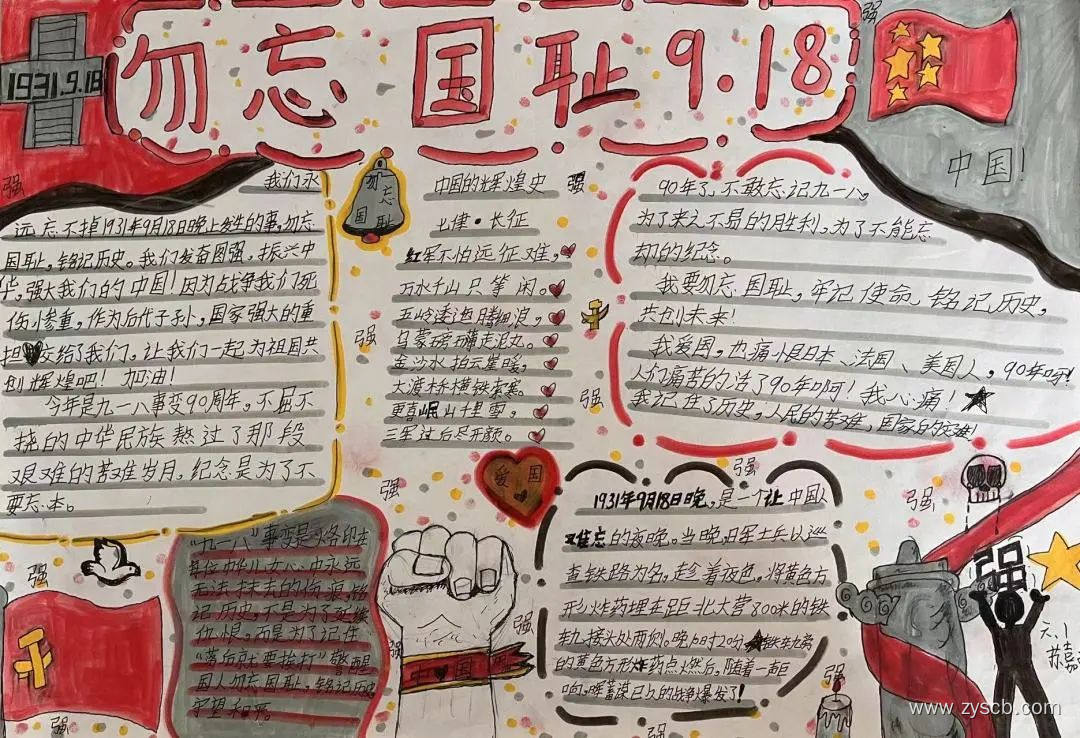 勿忘国耻9.18
1931.9.18
中国!
强
强
我们永
远忘不掉1931年9月18日晚上发生的事,勿忘
国耻,铭记历史。我们发奋图强,振兴中
华,强大我们的中国!因为战争我们死
伤惨重,作为后代子孙,国家强大的重
担交给了我们,让我们一起为祖国共
创辉煌吧!加油!
今年是九一八事变90周年,不屈不
挠的中华民族熬过了那段
艰难的苦难岁月,纪念是为了不
要忘本。
勿忘
国耻
中国的辉煌史
强
七律·长征
红军不怕远征难,
万水千山只等闲。
五岭逶迤腾细浪,
乌蒙磅礴走泥丸。
金沙水拍云崖暖,
大渡桥横铁索寒。
更喜岷山千里雪,
三军过后尽开颜。
强
强
90年了,不敢忘记九一八,
为了来之不易的胜利,为了不能忘
却的纪念。
我要勿忘国耻,牢记使命,铭记历史,
共创未来!
我爱国,也痛恨日本、法国、美国人,90年呀!
人们痛苦的活了90年啊!我心痛!
我记住了历史,人民的苦难,国家的灾难!
爱国
强
强
强
1931年9月18日晚,是一个让中国人
难忘的夜晚。当晚,日军士兵以巡
查铁路为名,趁着夜色,将黄色方
形炸药埋在距北大营800米的铁
轨接头处两侧。晚10时20分,铁轨旁
的黄色方形炸药点燃后,随着一声巨
响,蓄谋已久的战争爆发了!
"九一八"事变是
中华儿女心中永远
无法抹去的伤痕,铭
记历史,不是为了延续
仇恨,而是为了记住
"落后就要挨打"警醒
国人勿忘国耻,铭记历史
守望和平。
强
强
中国
强
强
强
强
强
强
六.1
苏嘉
www.zyscb.com